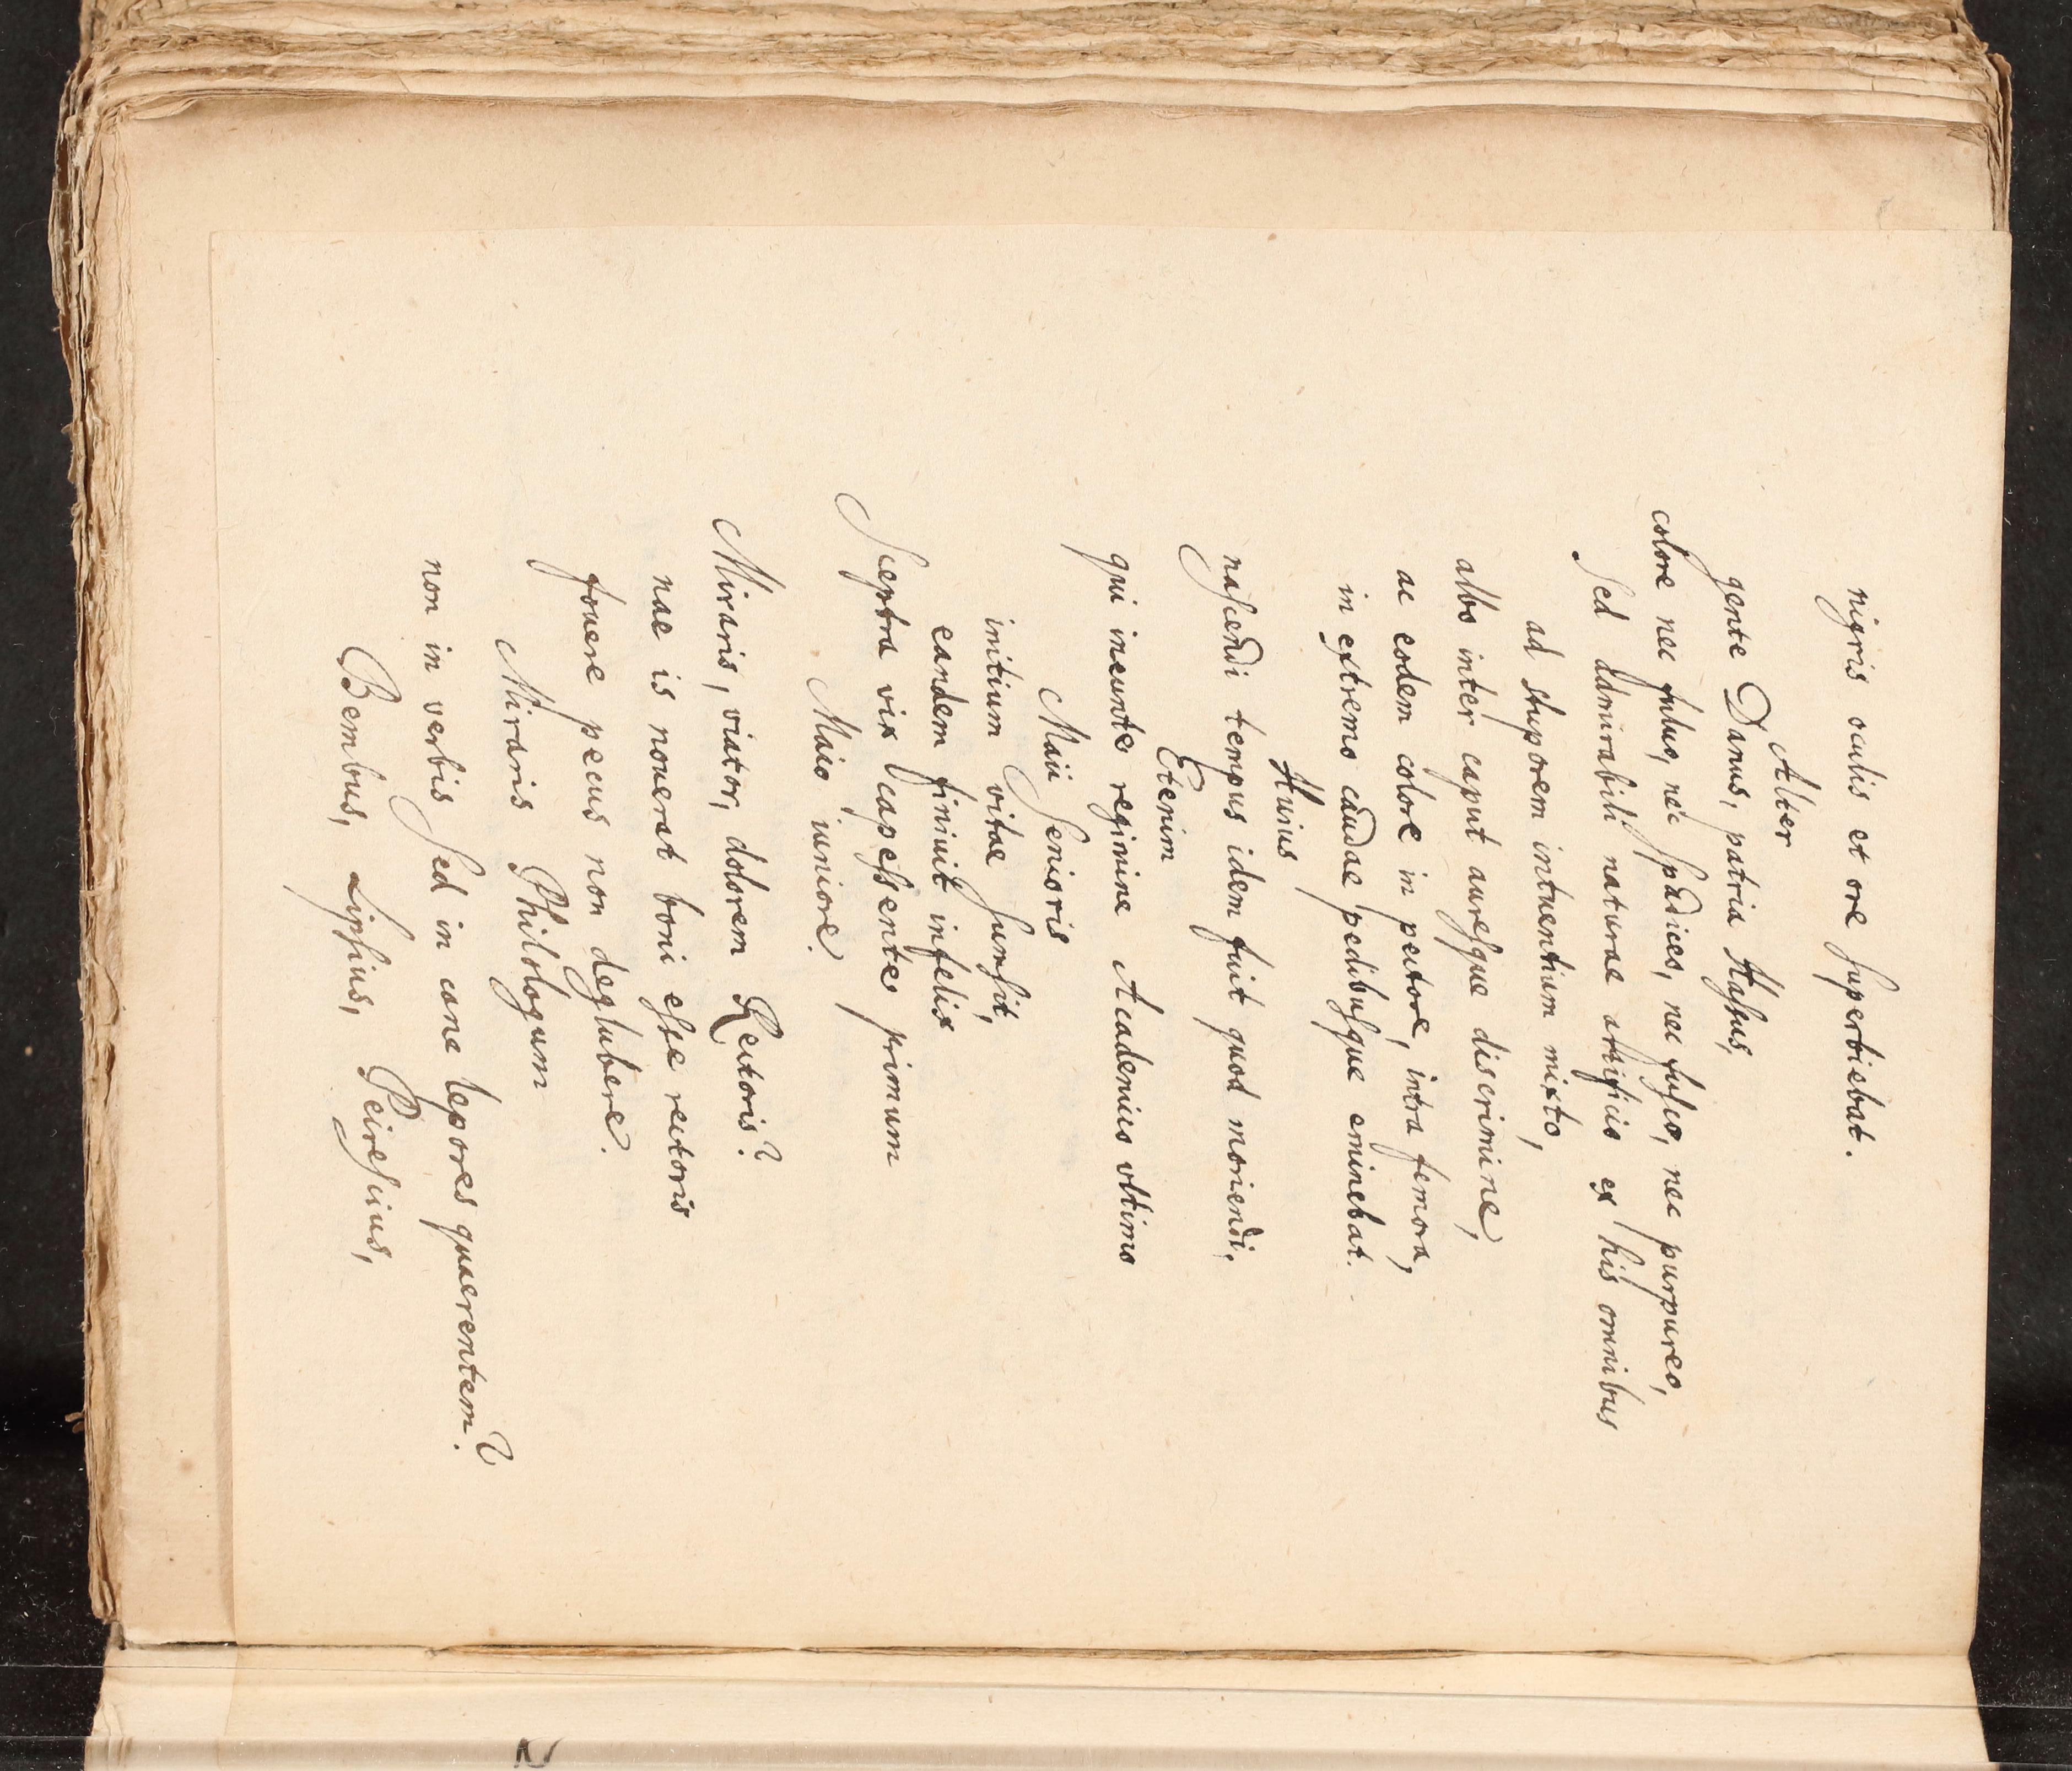 nigris oculis et ore superbiebat.
Alter
gente Danus, patria Hassus,
colore nec gilbus, nec spadiceo, nec fusco, nec purpureo,
sed admirabili naturae artificio ex his omnibus
ad stuporem intuentium mixto,
albo inter caput auresque discrimine,
ac eodem colore in pectore, intra femora,
in extremo caudae pedibusque eminebat.
Huius
nascendi tempus idem fuit quod moriendi.
Etenim
qui ineunte regimine Academico vltimo
Maii Senioris
initium vitae sumsit,
eandem finiuit infelix
Sceptra vix capessente primum
Maio iuniore.
Miraris, viator, dolorem Rectoris?
nae is nouerat boni esse rectoris
fouere pecus non deglubere.
Miraris Philologum
non in verbis sed in cane lepores quaerentem?
Bembus, Lipsius, Peirescius,